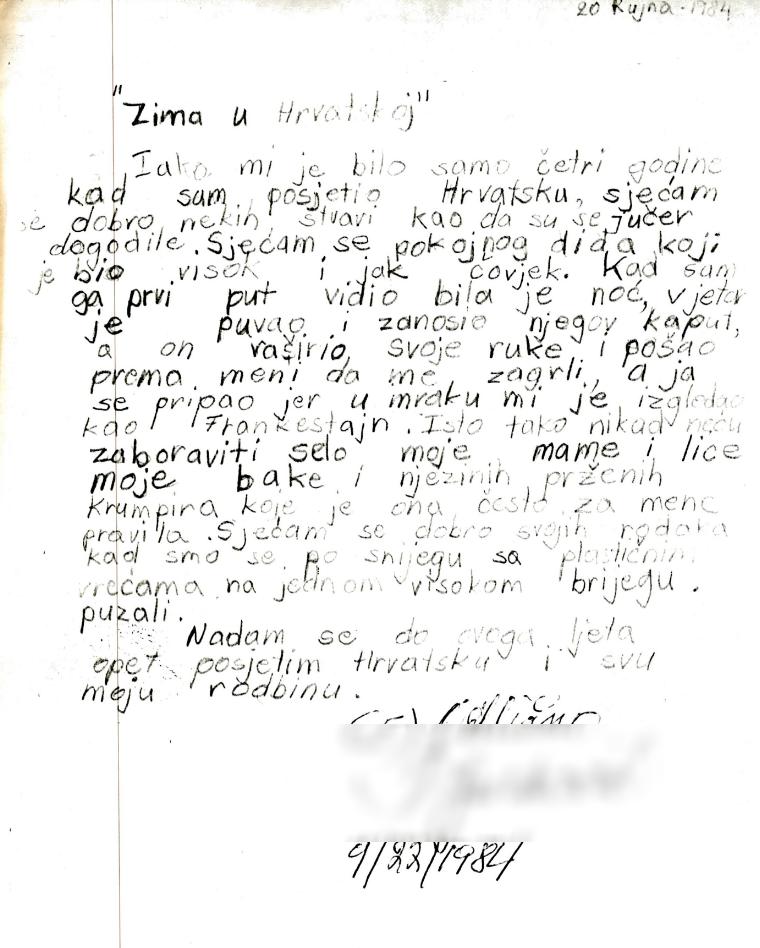 20 Rujna - 1984
"Zima u Hrvatskoj"
Iako mi je bilo samo četri godine
kad sam posjetio Hrvatsku, sjećam
se dobro nekih stvari kao da su se jučer
dogodile. Sjećam se pokojnog dida koji
je bio visok i jak čovjek. Kad sam
ga prvi put vidio bila je noć, vjetar
je puvao i zanosio njegov kaput,
a on raširio svoje ruke i pošao
prema meni da me zagrli, a ja
se pripao jer u mraku mi je izgledao
kao Frankestajn. Isto tako nikad neću
zaboraviti selo moje mame i lice
moje bake i njezinih prženih
krumpira koje je ona često za mene
pravila. Sjećam se dobro svojih rođaka
kad smo se po snijegu sa plastičnim
vrećama na jednom visokom brijegu.
puzali.
Nadam se do ovoga ljeta
opet posjetim Hrvatsku i svu
moju rodbinu.
9/22/1984